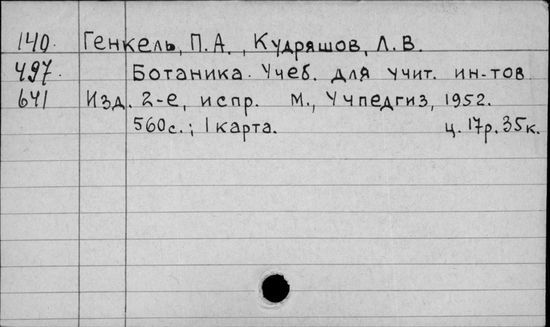 140. Генкель, П.А., Кудряшов, Л.В.
497. Ботаника. Учеб. для учит. ин-тов
641 Изд. 2-е, испр. М., Учпедгиз, 1952.
560с.; 1 карта. ц. 17р.35к.